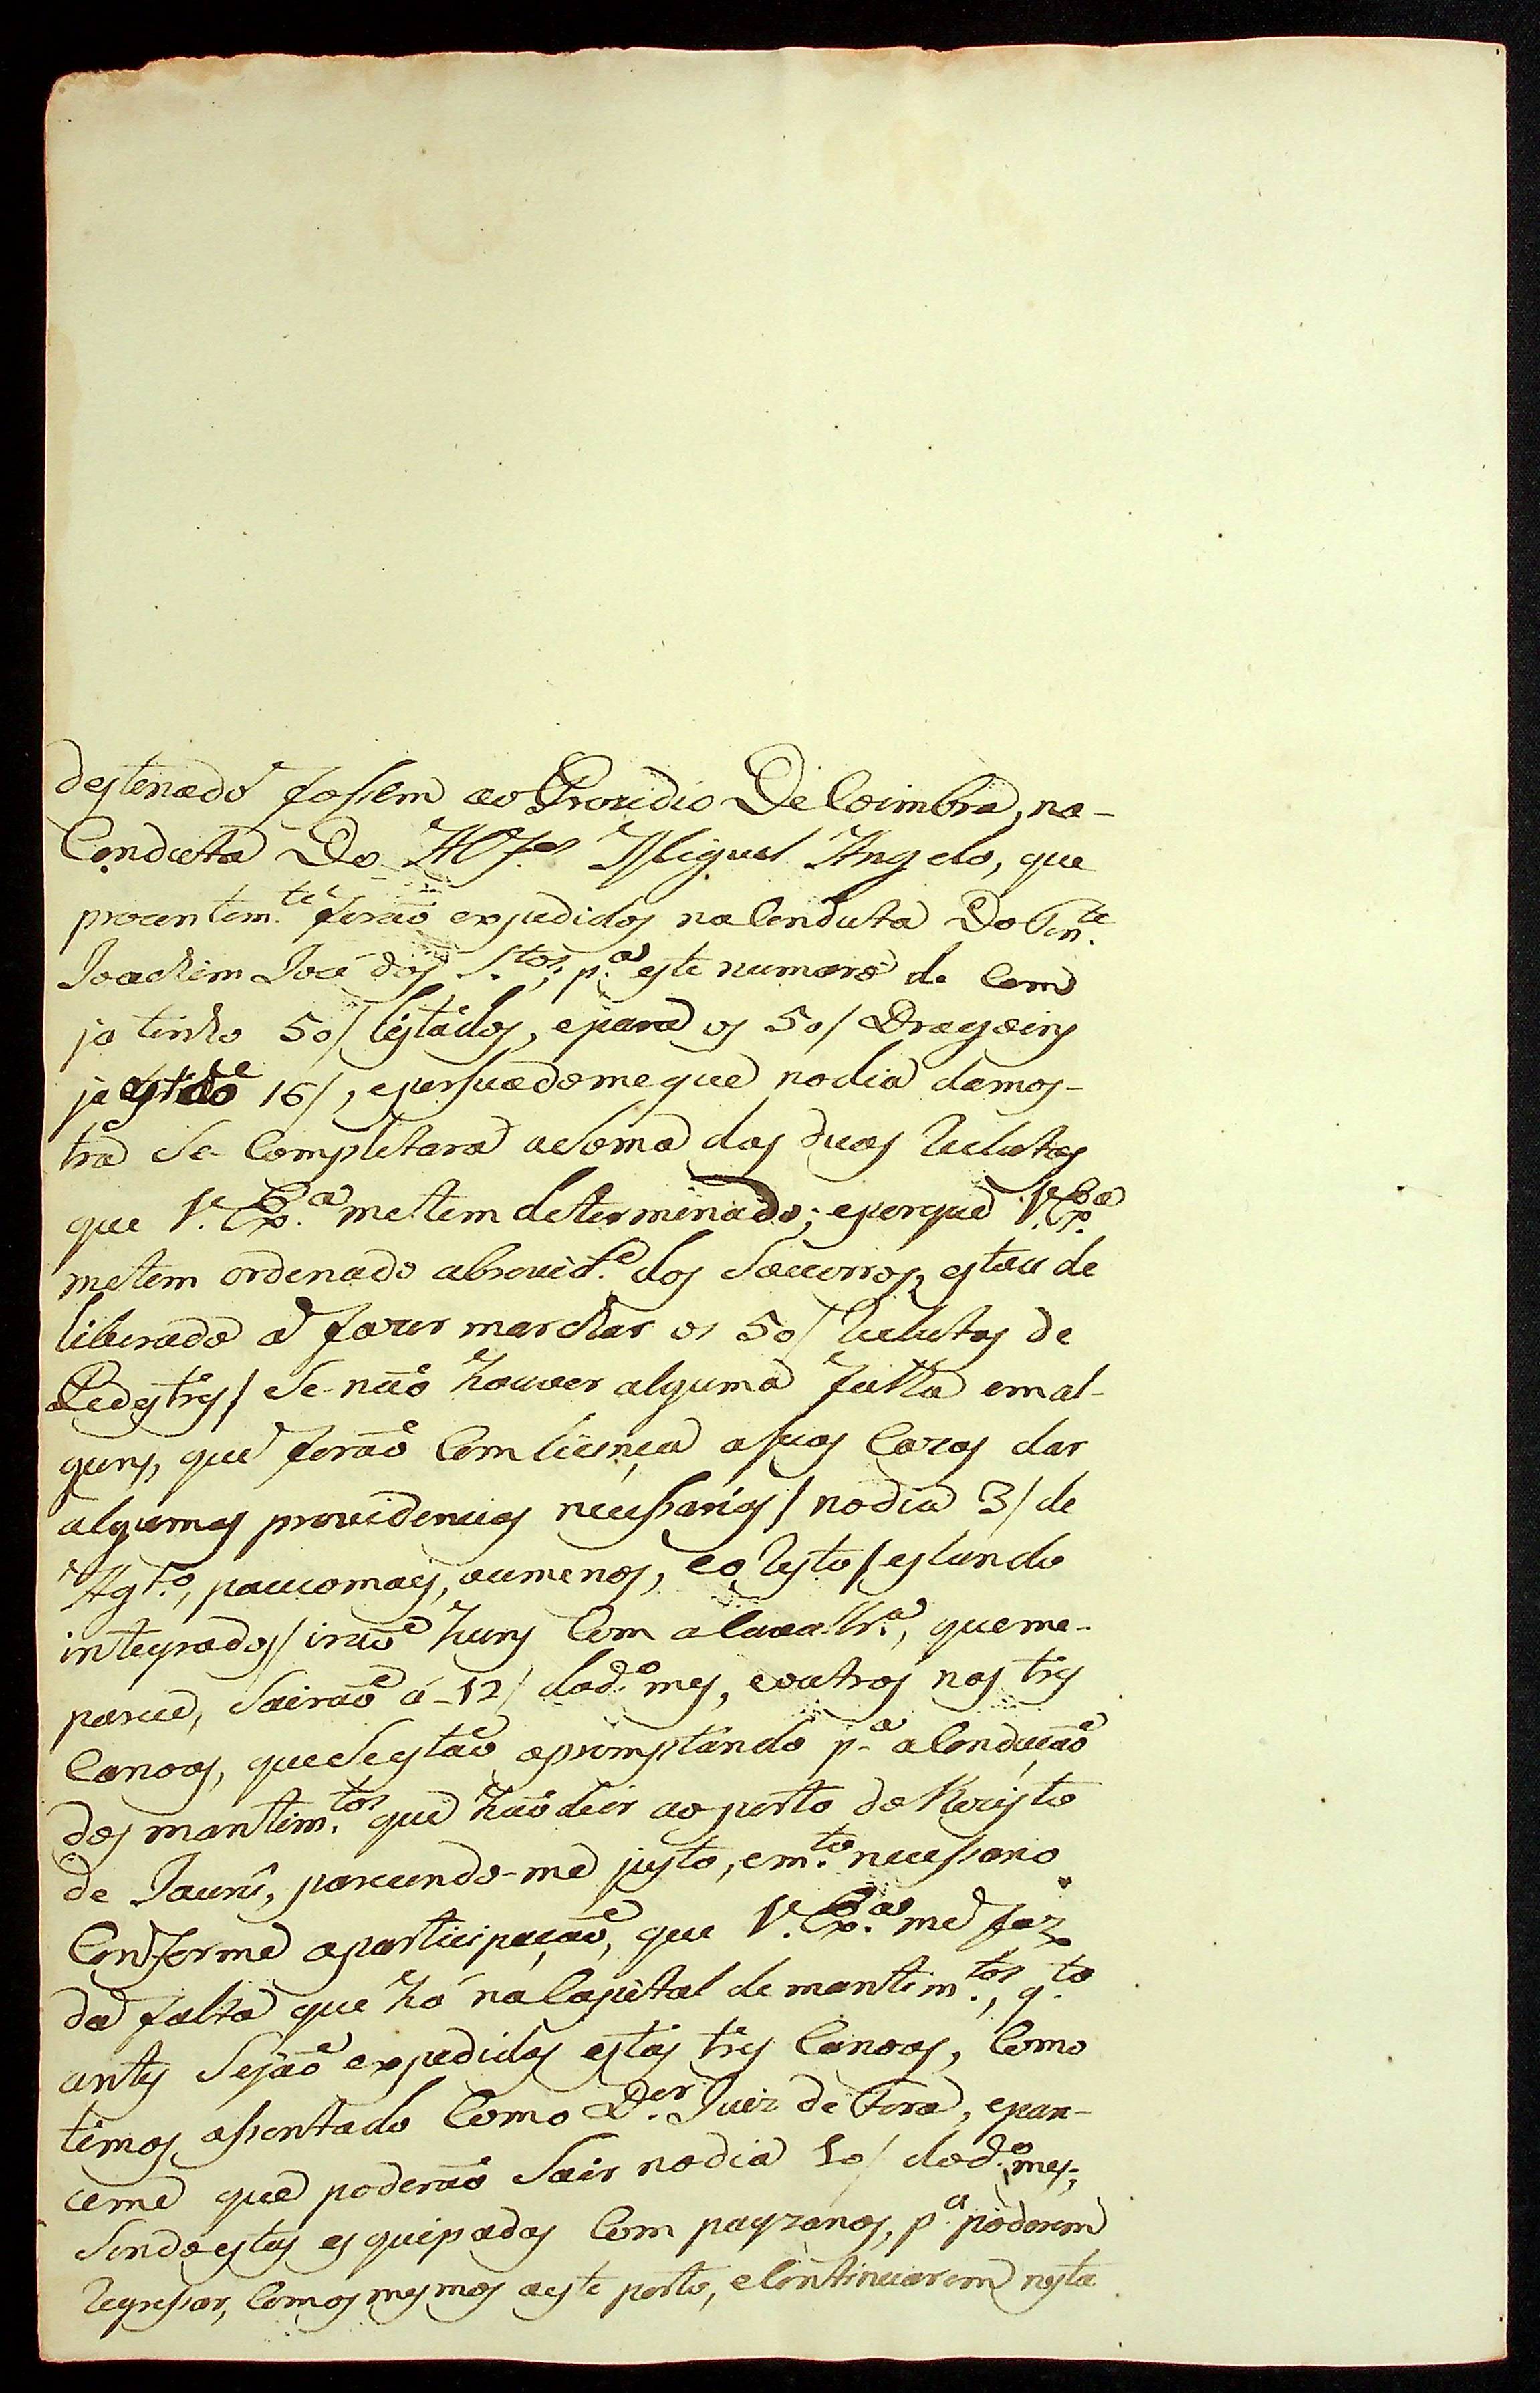 destenado fossem ao Prezidio De Coimbra, na-
Conducta Do Alf.es Miguel Angelo, que
prezentem.te forão expedidos na Conduta Do Ten.te
Joachim José dos S.tos; p.a este numaro de Cem
ja tenho 50/ listados, e para os 50/ Dragoins
ja 16/, e persuadome que no dia damos-
tra Se Completara a Soma das duas Reclutas
que V. Ex.a me tem determinado; e porque V. Ex.a
me tem ordenado a brevid.e dos Soccorros, estou de
liberado a fazer marchar os 50/ Reclutas de
Pedestres/ Se não houver alguma falta em al-
guns, que forão Com licença a suas Cazas dar
algumas providencias necessarias/ no dia 3/ de
Agt.o, pouco mais, ou menos, e o resto/ estando
integrados/ irão huns Com a Cavallr.a, que me-
parece, Sairão á 12/ dod.o mes, e outros nas tres
Canoas, que Se estão apromptando p.a a Condução
dos mantim.tos que hão de ir ao porto do Rezisto
de Jaurú, parecendo-me justo, e m.to necessario
Conforme a participação, que V. Ex.a me faz
da falta que há na Capital de mantim.tos, q.to
antes Sejão expedidas estas tres Canoas, Como
temos assentado Com o D.or Juiz de Fora, e pare-
ceme que poderão Sair no dia 10/ dod.o mes;
Sendo estas esquipadas Com payzanos, p.a poderem
regressar, Com os mesmos a este porto, e Continuarem nesta